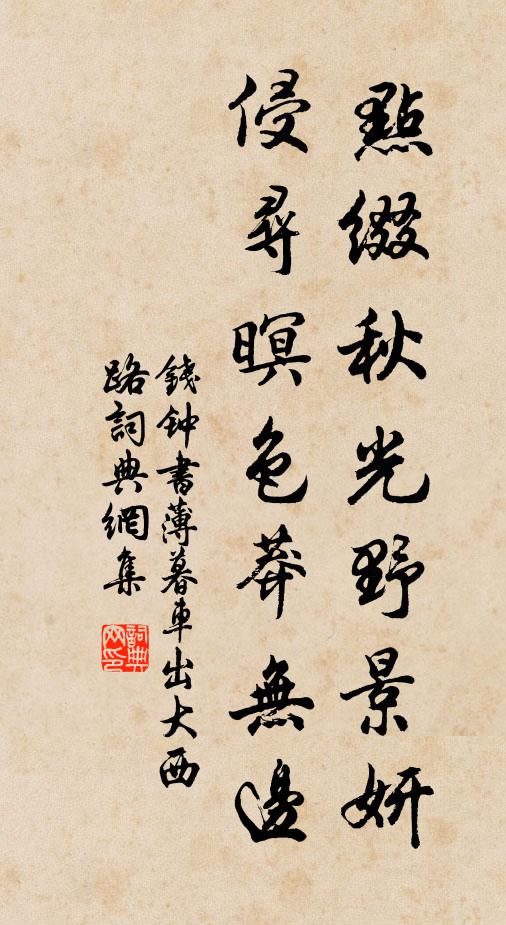 點綴秋光野景妍
侵尋暝色莽無邊
錢钟書薄暮車出大西
路詞典網集
詞典网印